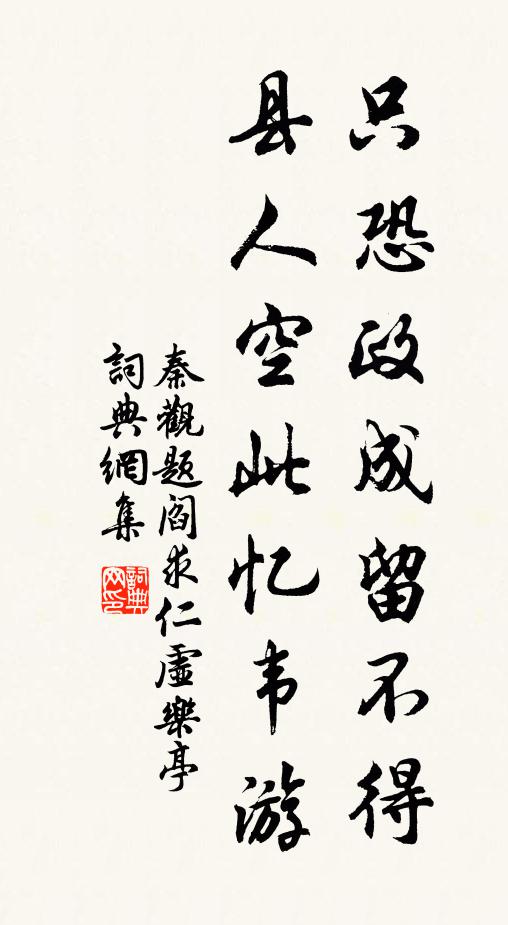 只恐政成留不得
县人空此忆韦游
秦觀题阎求仁虛樂亭
詞典網集
詞典网印